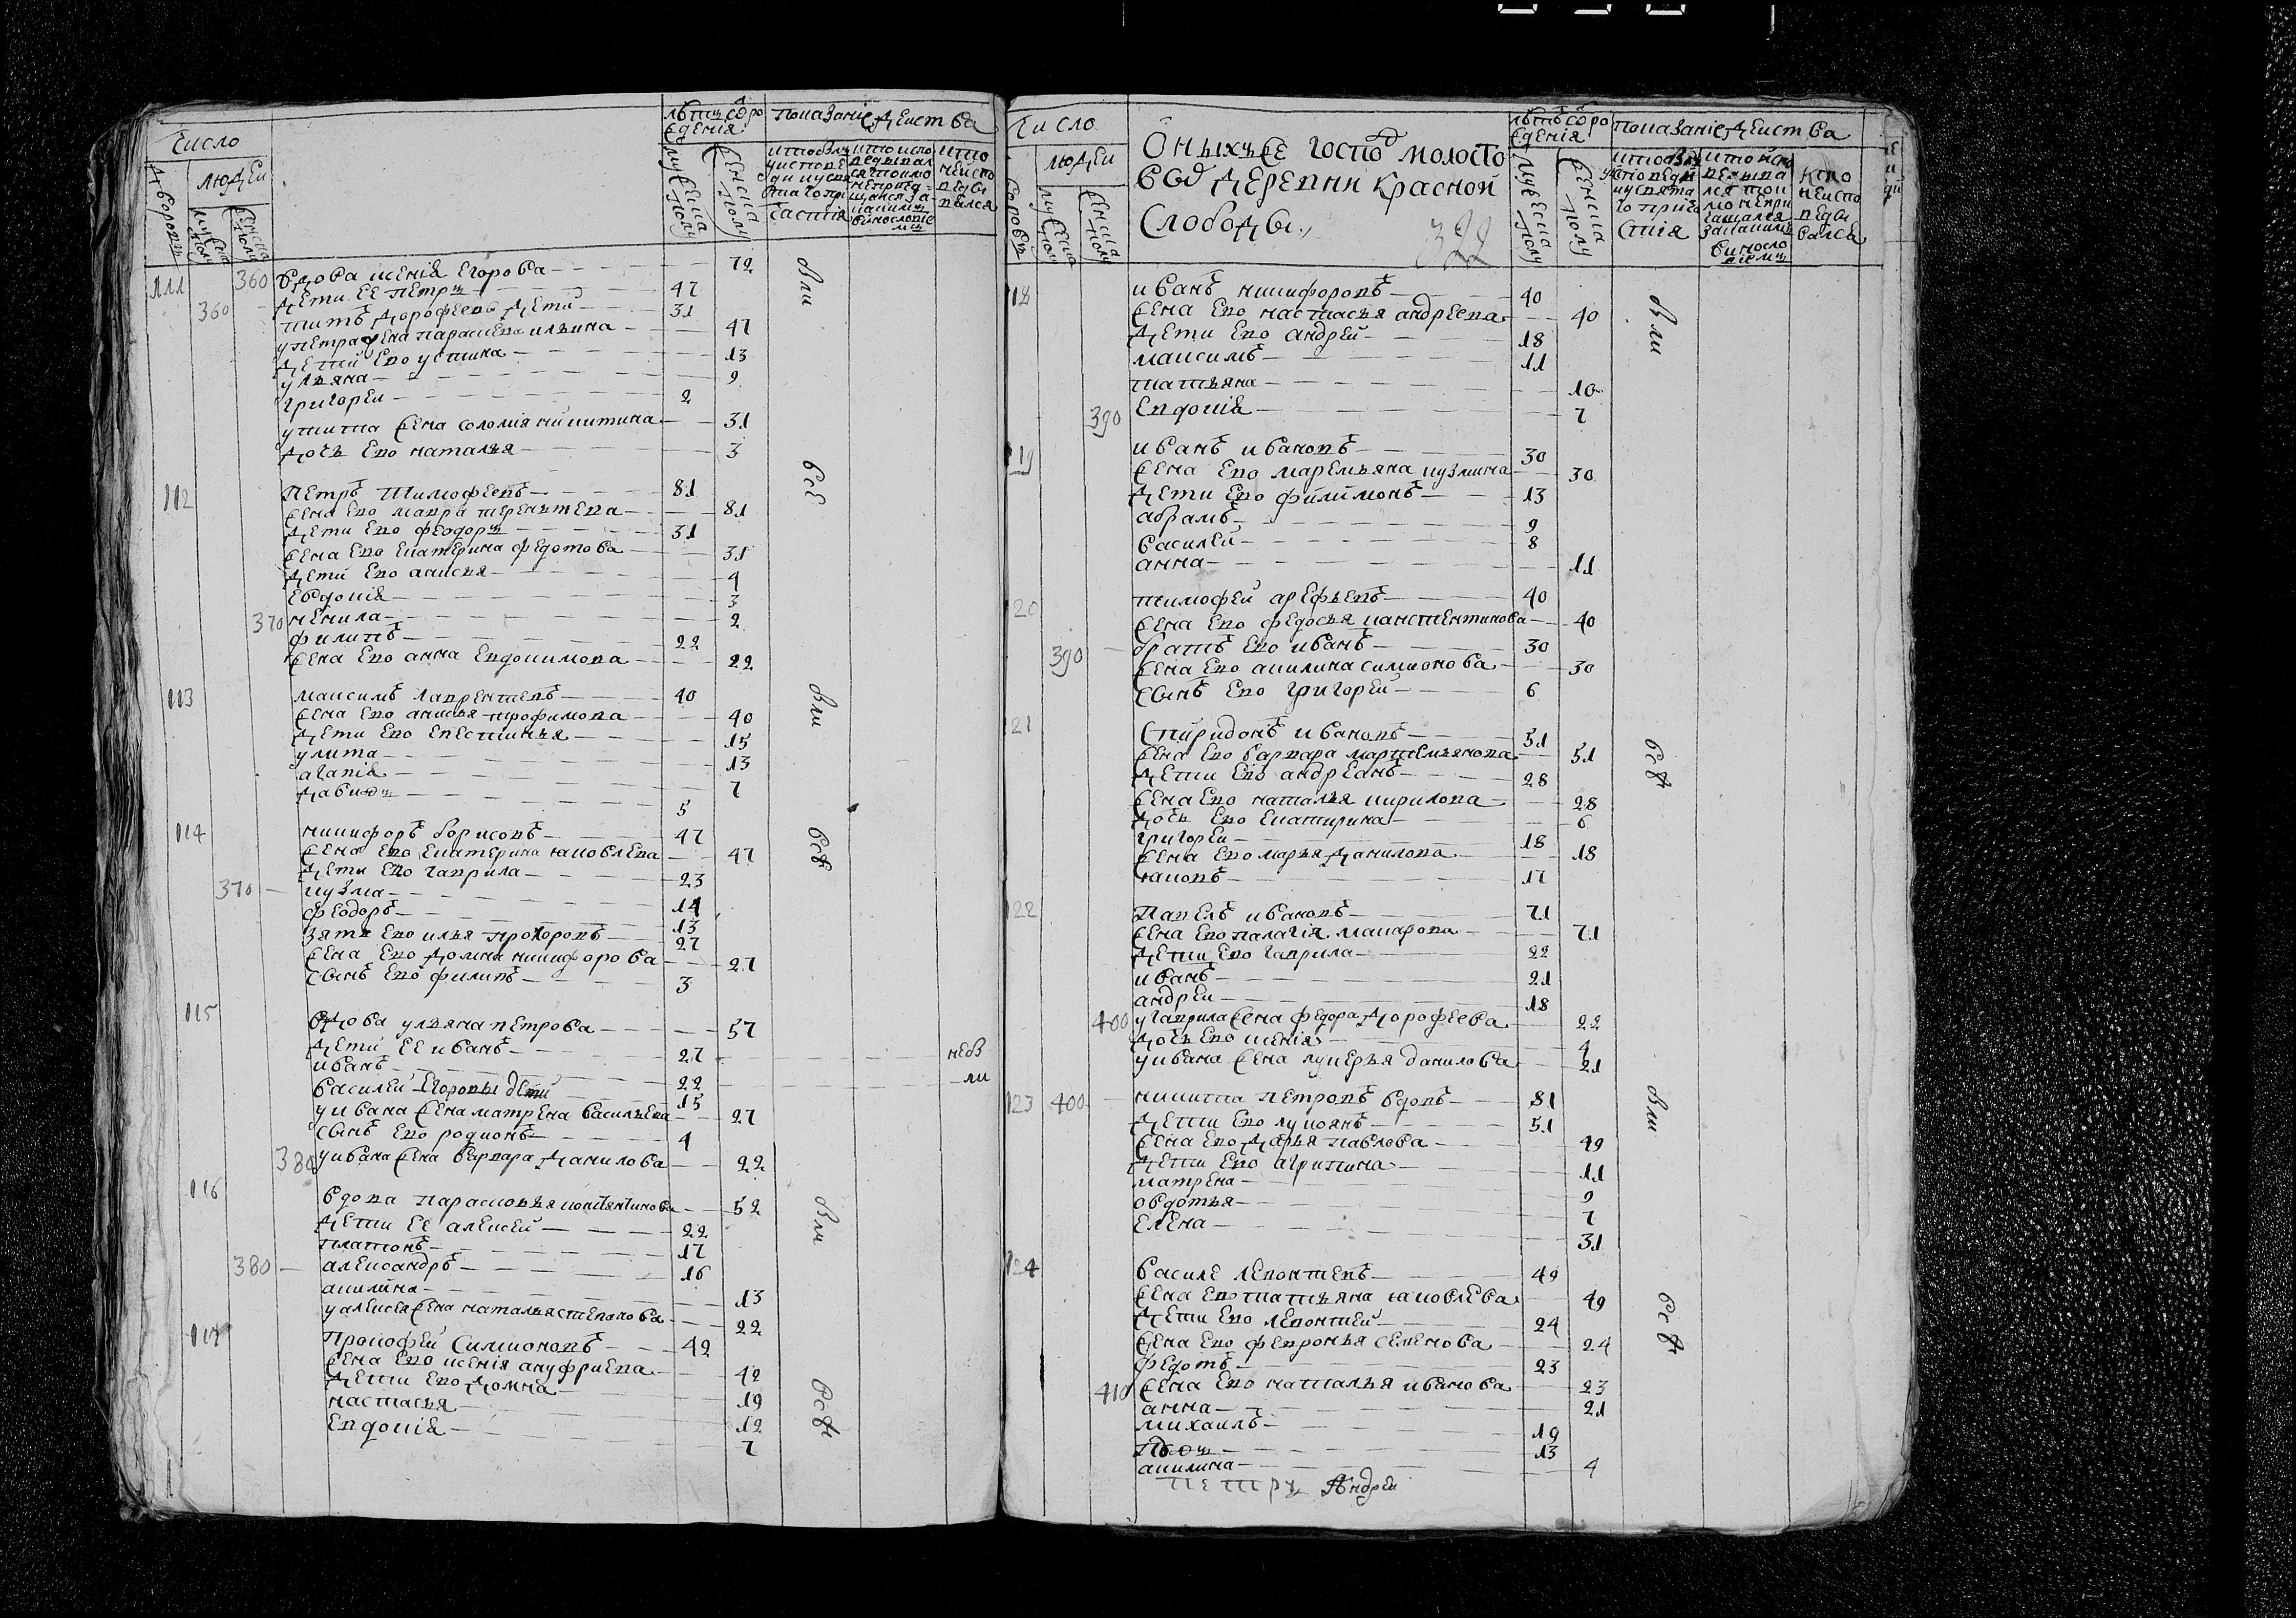 Число
Людей
Дворовъ
Мужеска полу
Женска полу
Лѣтъ от рождения
Показание действа
111 360 вдова ксения Егорова 72
дети ее Петръ 47
360 титъ дорофеевы дети 31
у петра жена парасковья ильина 47
дети ево устина 13
ульяна 9
григореи 2
у тита жена соломия никитина 31
дочь ево наталья 3
вли
все
112 Петръ Тимофеевъ 81
жена ево мавра терентева 81
дети ево феодоръ 31
жена ево екатерина федотова 31
дети ево анисья 4
евдокия 3
370 ненила 2
филипъ 22
жена ево анна Евдокимова 22
113 максимъ лаврентевъ 40
жена ево анисья трофимова 40
дети ево епестимья 15
улита 13
агапия 7
давидъ 5
вли
114 никифоръ борисовъ 47
жена ево екатерина яковлева 47
дети ево гаврила 23
370 кузма 14
феодоръ 13
зять ево илья прохоровъ 27
жена ево домна никифорова 27
сынъ ево филипъ 3
всѣ
115 вдова ульяна петрова 57
дети ее иванъ 27 нев
иванъ 22 ли
василеи Егоровы дети 15
у ивана жена матрена васильева 27
сынъ ево родионъ 4
380 у ивана жена варвара данилова 22
116 вдова парасковья констянтинова 52
дети ее алексеи 22
платонъ 17
380 александръ 16
акилина 13
у алексея жена наталья степанова 22
вли
117 Прокофеи Симионовъ 42
жена ево ксения ануфриева 42
дети ево домна 19
настасья 12
Евдокия 7
всѣ
Число
Людей
Оныхъ же господ молосто
вод деревни Красной
Слободы
322
Лѣтъ от рождения
Показание действа
118 иванъ никифоровъ 40
жена ево настасья андреева 40
дети ево андрей 18
максимъ 11
татьяна 10
390 Евдокия 7
вли
119 иванъ ивановъ 30
жена ево маремьяна кузмина 30
дети ево филимонъ 13
абрамъ 9
василей 8
анна 11
120 тимофей арефьевъ 40
жена ево федосья канстентинова 40
390 братъ ево иванъ 30
жена ево акилина симионова 30
сынъ ево григорей 6
121 Спиридонъ ивановъ 51
жена ево варвара мартемьянова 51
дети ево андреанъ 28
жена ево наталья кирилова 28
дочь ево екатирина 6
григореи 18
жена ево марья данилова 18
яковъ 17
всѣ
122 Павелъ ивановъ 71
жена ево палагия макарова 71
дети ево гаврила 22
иванъ 21
андреи 18
400 у гаврила жена федора дорофеева 22
дочь ево ксения 4
у ивана жена лукерья данилова 21
123 400 никита петровъ вдовъ 81
дети ево лукоянъ 51
жена ево дарья павлова 49
дети ево агрипина 11
матрена 9
овдотья 7
елена 31
вли
124 василе левонтевъ 49
жена ево татьяна яковлева 49
дети ево левонтей 24
жена ево февронья семенова 24
федотъ 23
410 жена ево наталья иванова 23
анна 21
михаилъ 19
13
акилина 4
всѣ
петръ Андреи